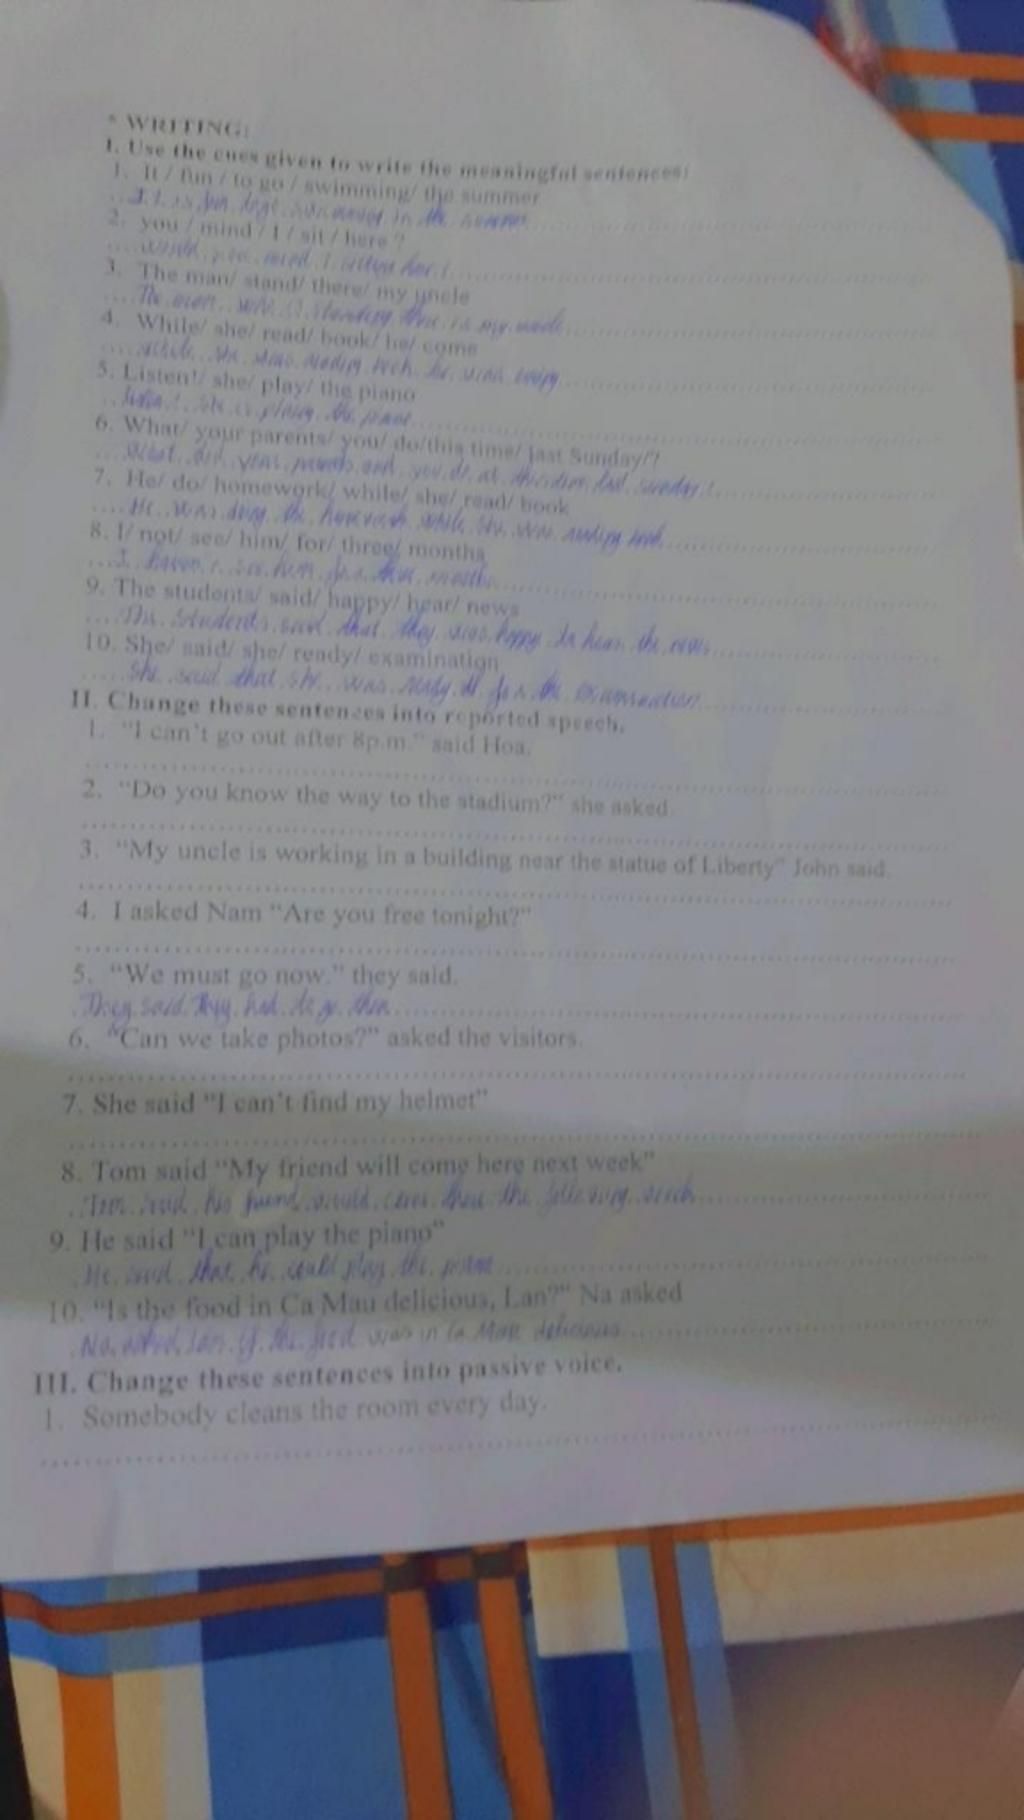 * WRITING:
I. Use the cues given to write the meaningful sentences:
1. It / fun / to go / swimming/ the summer
It is fun to go swimming in the summer
2. you / mind / I / sit / here ?
would you mind I
3. The man/ stand/ there/ my uncle
The man who is standing there is my uncle
4. While/ she/ read/ book/ he/ come
while she was reading book he was
5. Listen!/ she/ play/ the piano
listen! she is playing the piano
6. What/ your parents/ you/ do/this time/ last Sunday/?
What did your parents and you do at this time last sunday?
7. He/ do/ homework/ while/ she/ read/ book
He was doing the homework while she was reading book
8. I/ not/ see/ him/ for/ three/ months
I haven't see him for three months
9. The students/ said/ happy/ hear/ news
The students said that they was happy to hear the news
10. She/ said/ she/ ready/ examination
She said that she was ready for the examination
II. Change these sentences into reported speech.
1. "I can't go out after 8p.m." said Hoa.
2. "Do you know the way to the stadium?" she asked.
3. "My uncle is working in a building near the statue of Liberty" John said.
4. I asked Nam "Are you free tonight?"
5. "We must go now." they said.
They said they had to go then
6. "Can we take photos?" asked the visitors.
7. She said "I can't find my helmet"
8. Tom said "My friend will come here next week"
Tom said his friend would come there the following week
9. He said "I can play the piano"
He said that he could play the piano
10. "Is the food in Ca Mau delicious, Lan?" Na asked
Na asked Lan if the food was in Ca Mau delicious
III. Change these sentences into passive voice.
1. Somebody cleans the room every day.